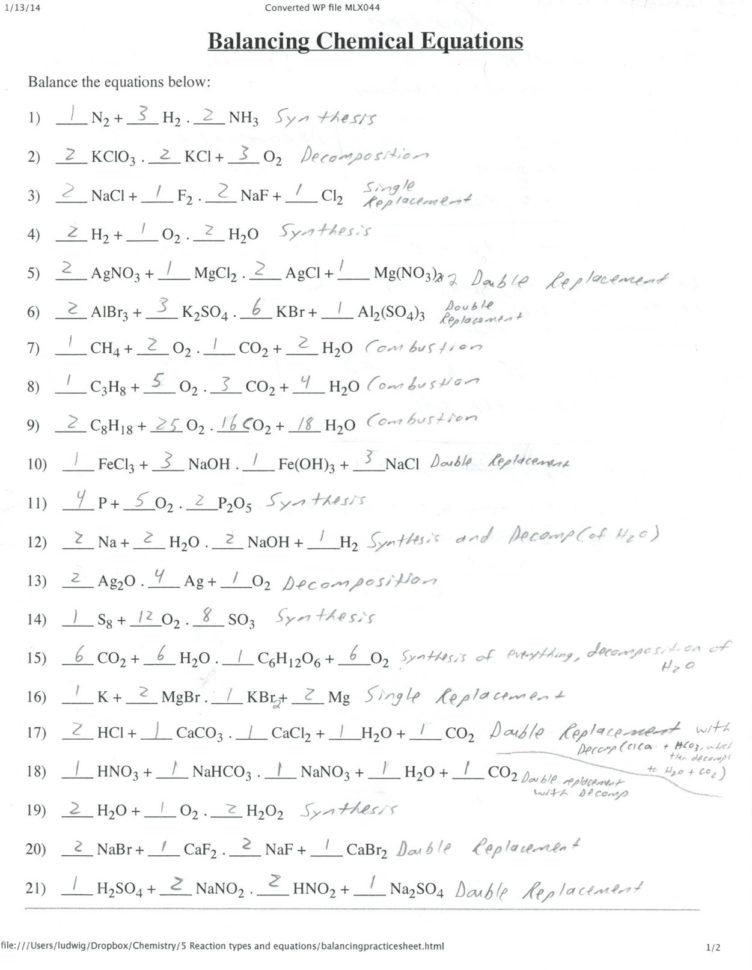 1/13/14 Converted WP file MLX044
Balancing Chemical Equations
Balance the equations below:
1) 1 N₂ + 3 H₂ . 2 NH₃ Synthesis
2) 2 KClO₃ . 2 KCl + 3 O₂ Decomposition
3) 2 NaCl + 1 F₂ . 2 NaF + 1 Cl₂ Single Replacement
4) 2 H₂ + 1 O₂ . 2 H₂O Synthesis
5) 2 AgNO₃ + 1 MgCl₂ . 2 AgCl + 1 Mg(NO₃)₂ 2 Double Replacement
6) 2 AlBr₃ + 3 K₂SO₄ . 6 KBr + 1 Al₂(SO₄)₃ Double Replacement
7) 1 CH₄ + 2 O₂ . 1 CO₂ + 2 H₂O Combustion
8) 1 C₃H₈ + 5 O₂ . 3 CO₂ + 4 H₂O Combustion
9) 2 C₈H₁₈ + 25 O₂ . 16 CO₂ + 18 H₂O Combustion
10) 1 FeCl₃ + 3 NaOH . 1 Fe(OH)₃ + 3 NaCl Double Replacement
11) 4 P + 5 O₂ . 2 P₂O₅ Synthesis
12) 2 Na + 2 H₂O . 2 NaOH + 1 H₂ Synthesis and Decomp (of H₂O)
13) 2 Ag₂O . 4 Ag + 1 O₂ Decomposition
14) 1 S₈ + 12 O₂ . 8 SO₃ Synthesis
15) 6 CO₂ + 6 H₂O . 1 C₆H₁₂O₆ + 6 O₂ Synthesis of everything, decomposition of
H₂O
16) 1 K + 2 MgBr . 1 KBr₂ + 2 Mg Single Replacement
17) 2 HCl + 1 CaCO₃ . 1 CaCl₂ + 1 H₂O + 1 CO₂ Double Replacement with
Decomp + HCO₃,
to H₂O + CO₂)
18) 1 HNO₃ + 1 NaHCO₃ . 1 NaNO₃ + 1 H₂O + 1 CO₂ Double replacement
with Decomp
19) 2 H₂O + 1 O₂ . 2 H₂O₂ Synthesis
20) 2 NaBr + 1 CaF₂ . 2 NaF + 1 CaBr₂ Double Replacement
21) 1 H₂SO₄ + 2 NaNO₂ . 2 HNO₂ + 1 Na₂SO₄ Double Replacement
file:///Users/ludwig/Dropbox/Chemistry/5 Reaction types and equations/balancingpracticesheet.html 1/2